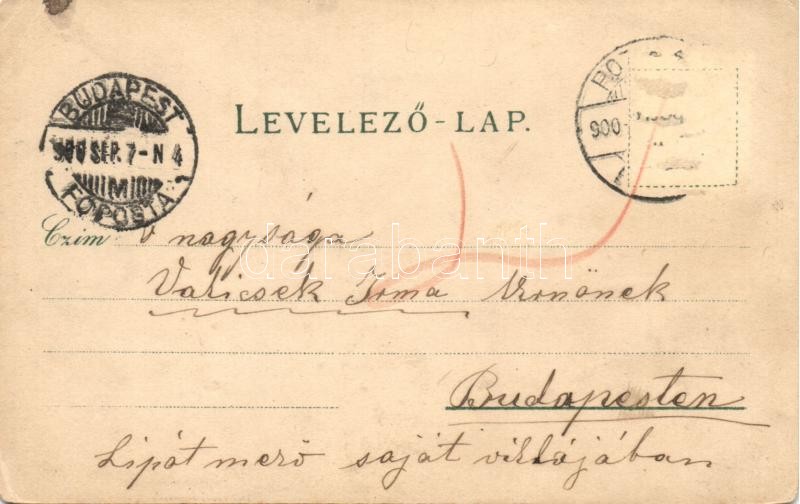 BUDAPEST
900 SEP. 7-N 4
M
FŐPOSTA
LEVELEZŐ-LAP.
900
Czim: nagysága
Valicsek Irma Urnőnek
Budapesten
Lipótmező saját villájában
darabanth